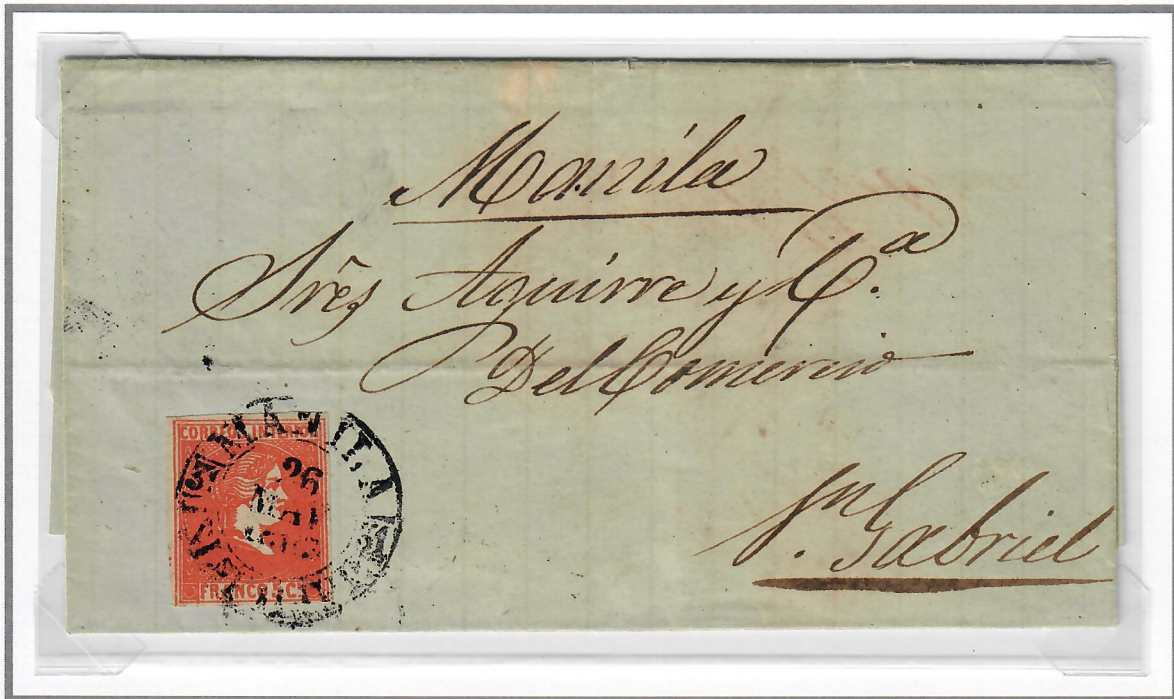 Manila
Srẽs Aguirre y Cª.
Del Comercio
Sn. Gabriel
CORREOS INTERIOR
FRANCO
MANILA
26